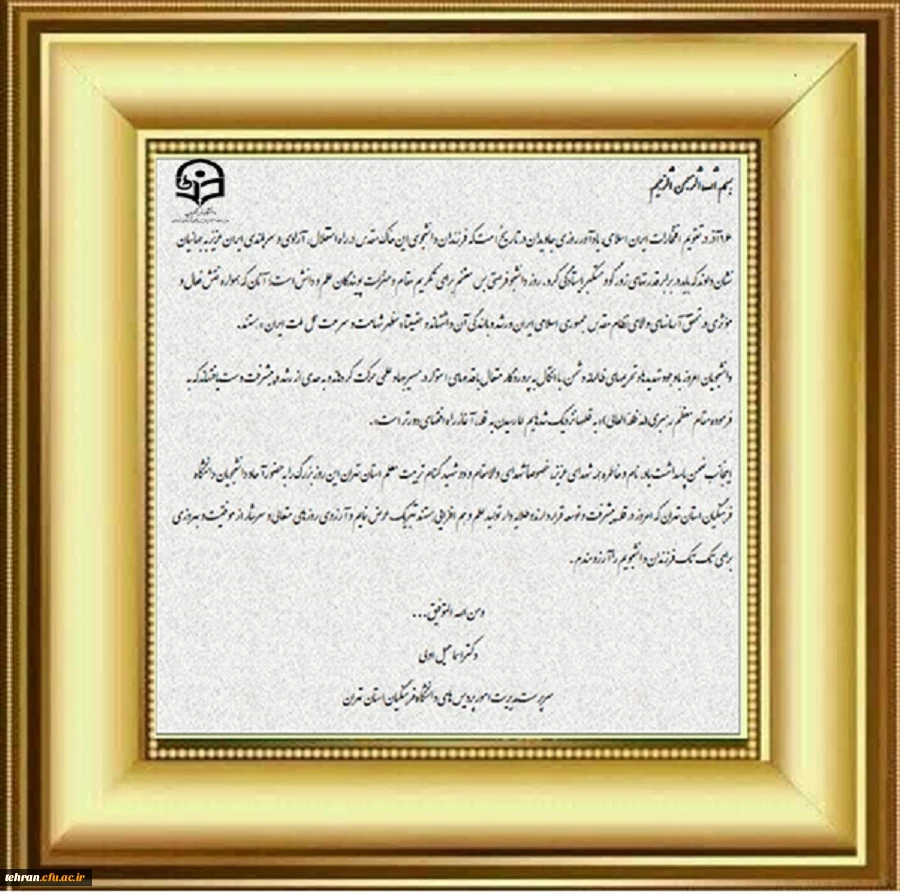 بسم الله الرحمن الرحیم
دانشگاه فرهنگیان
۱۶ آذر در تقویم افتخارات ایران اسلامی، یادآور روزی جاویدان در تاریخ است که فرزندان دانشجوی این خاک مقدس در راه استقلال، آزادی و سربلندی ایران عزیز به جهانیان
نشان دادند که باید در برابر قدرتهای زورگو و ستمگر ایستادگی کرد. روز دانشجو فرصتی بس مغتنم برای تکریم مقام و منزلت پویندگان علم و دانش است؛ آنان که همواره نقش فعال و
مؤثری در تحقق آرمانهای والای نظام مقدس جمهوری اسلامی ایران و رشد و بالندگی آن داشته‌اند و حقیقتاً مظهر شهامت و سرعت عمل ملت ایران هستند.
دانشجویان امروز با وجود تهدیدها و تحریمهای ظالمانه دشمن با اتکال به پروردگار متعال با قدمهای استوار در مسیر جهاد علمی حرکت کرده‌اند و به حدی از رشد و پیشرفت دست یافته‌اند که به
فرموده مقام معظم رهبری(مد ظله العالی)، به قله‌ها نزدیک شده‌ایم اما رسیدن به قله، آغاز راه افقهای دورتر است.
اینجانب ضمن پاسداشت یاد، نام و خاطره همه شهدای عزیز، خصوصا شهدای والامقام و دو شهید گمنام تربیت معلم استان تهران این روز بزرگ را به حضور آحاد دانشجویان دانشگاه
فرهنگیان استان تهران که امروز در قله پیشرفت و توسعه قرار دارند و طلایه دار تولید علم و هم افزایی هستند تبریک عرض نمایم و آرزوی روزهای متعالی و سرشار از موفقیت و بهروزی
برای تک تک فرزندان دانشجویم را آرزومندم.
و من الله التوفیق...
دکتر اسماعیل
سرپرست مدیریت امور پردیس های دانشگاه فرهنگیان استان تهران
tehran.cfu.ac.ir